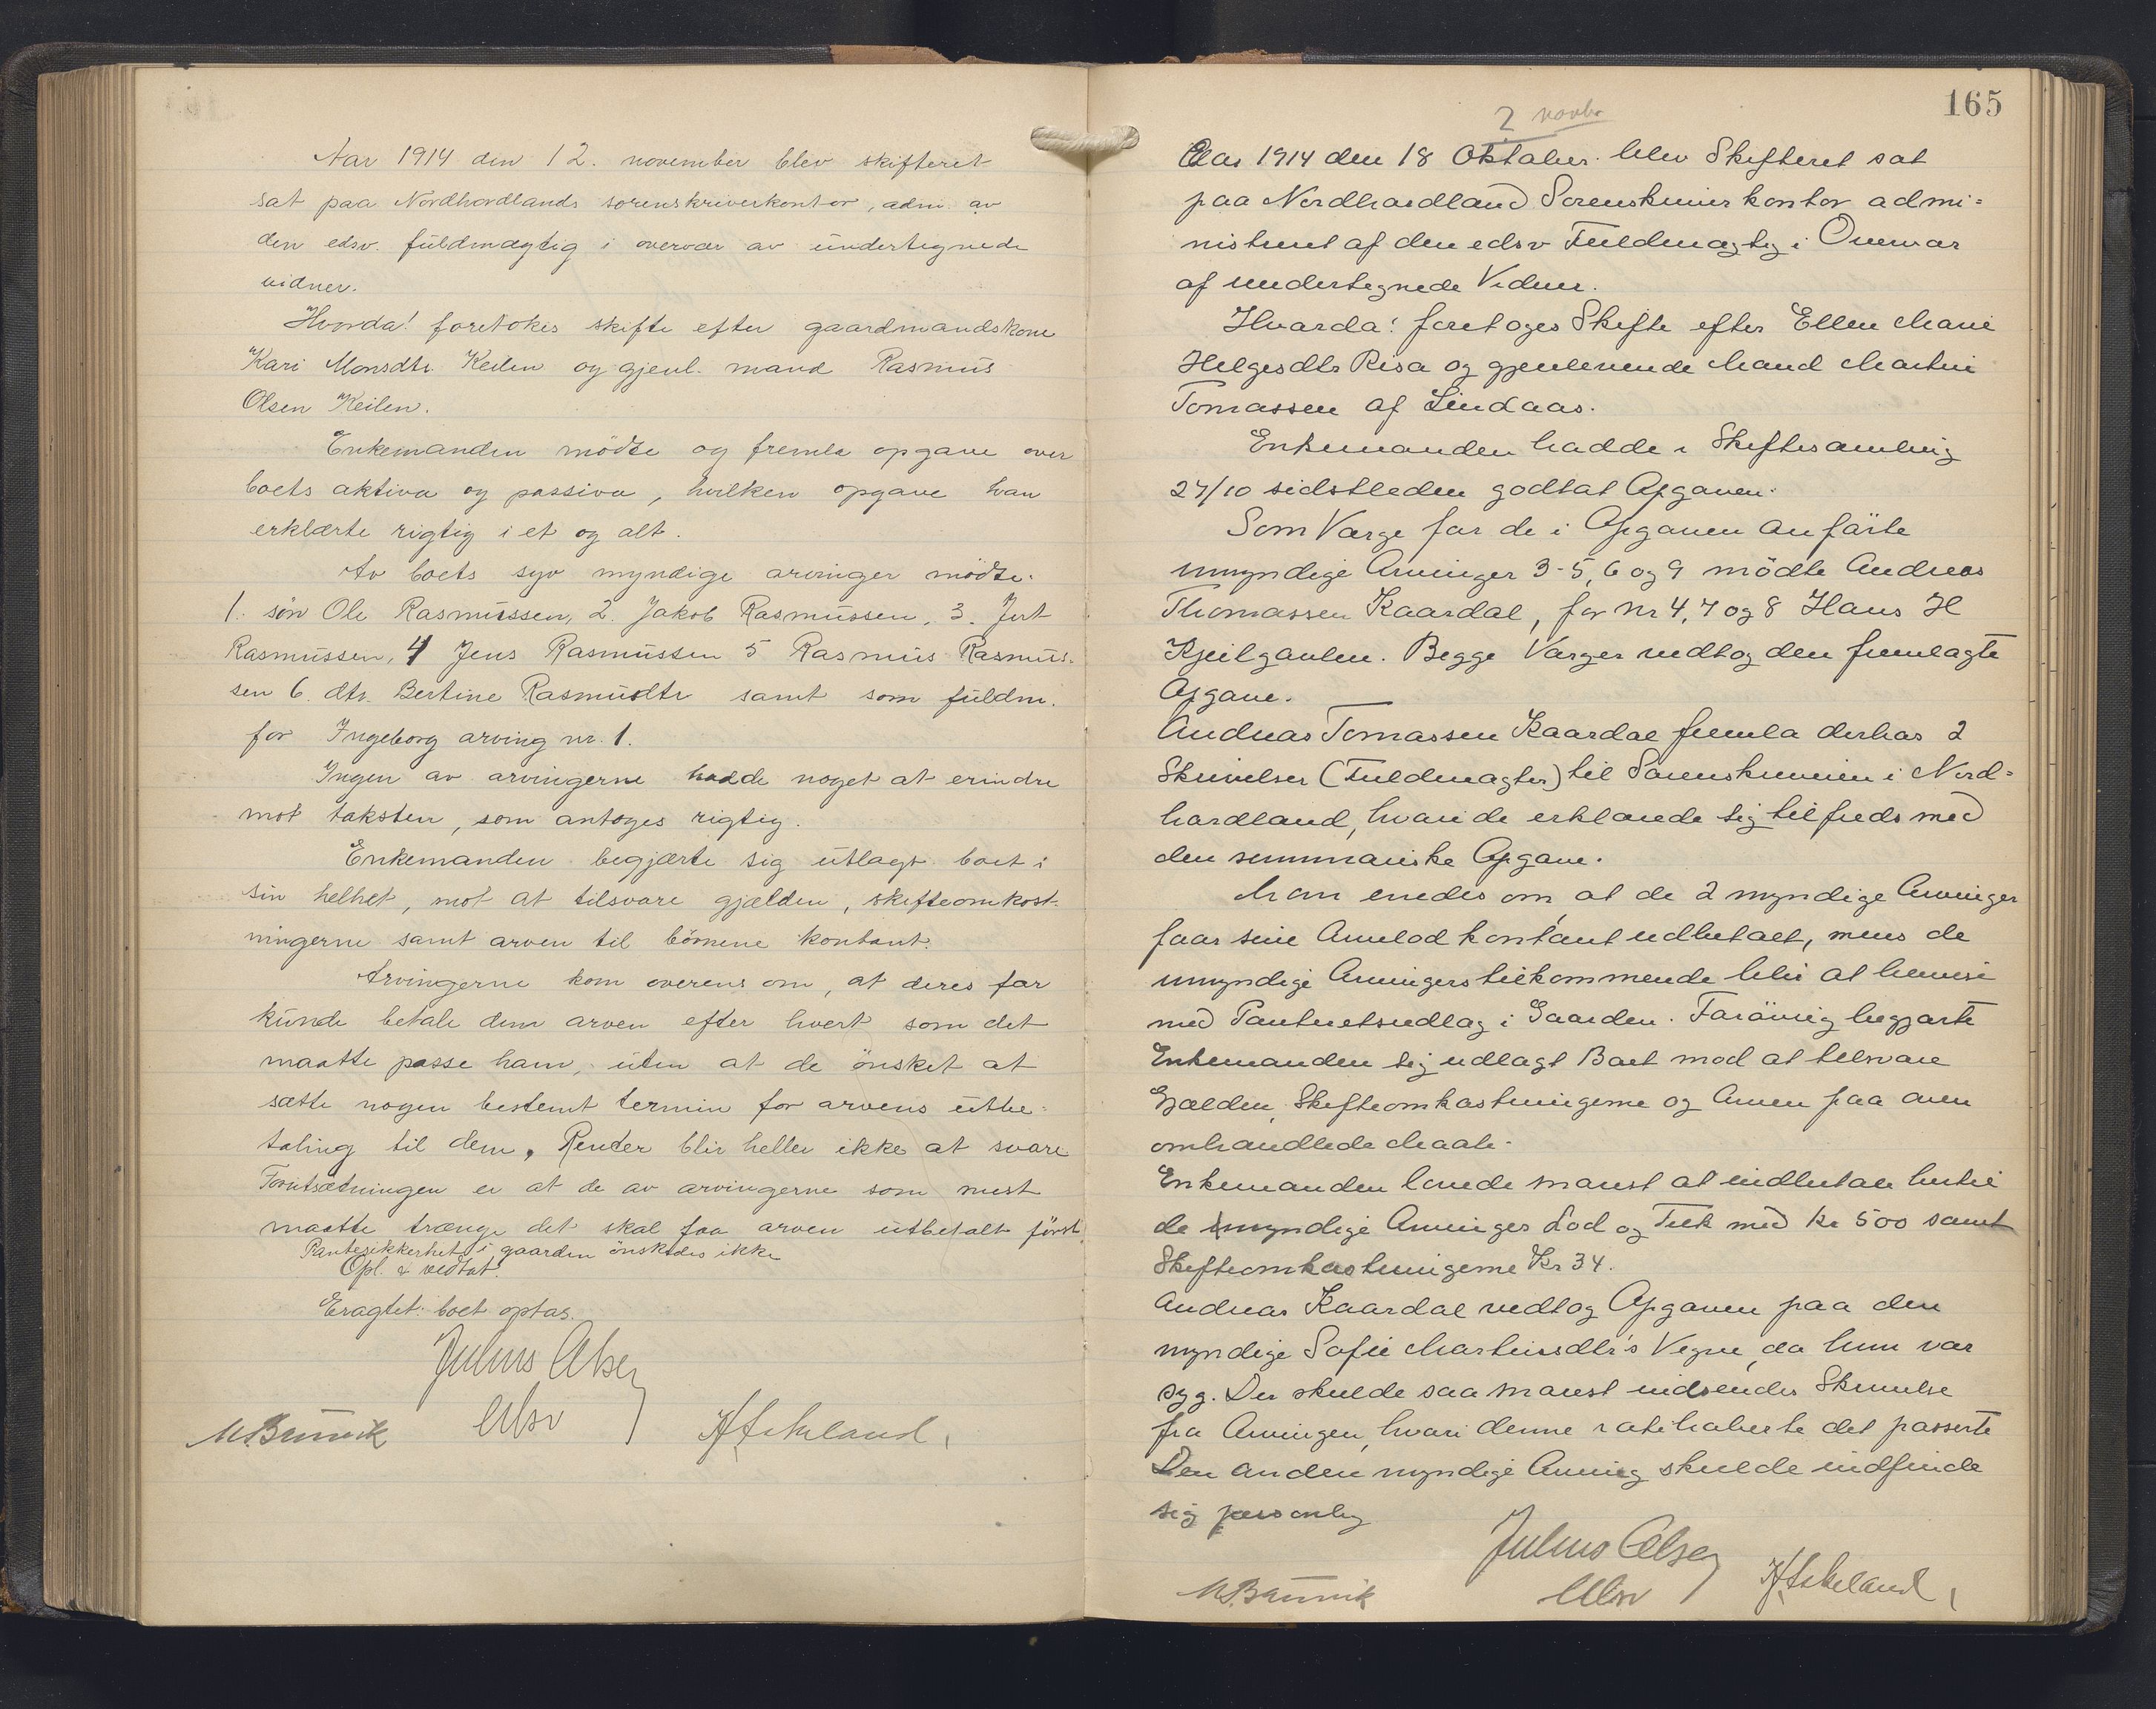 Aar 1914 den 12. november blev skifteret
sat paa Nordhordlands sorenskriverkontor, adm. av
den edsv. fuldmægtig i overvær av undertegnede
vidner.
Hvorda! foretokes skifte efter gaardmandskone
Kari Monsdtr. Keilen og gjenl. mand Rasmus
Olsen Keilen.
Enkemanden mödte og fremla opgave over
boets aktiva og passiva, hvilken opgave han
erklærte rigtig i et og alt.
Av boets syv myndige arvinger mödte:
1. sön Ole Rasmussen, 2. Jakob Rasmussen, 3. Jert
Rasmussen, 4 Jens Rasmussen 5 Rasmus Rasmus-
sen 6. dtr. Bertine Rasmusdtr samt som fuldm.
for Ingeborg arving nr. 1.
Ingen av arvingerne hadde noget at erindre
mot taksten, som antoges rigtig.
Enkemanden begjærte sig utlagt boet i
sin helhet, mot at tilsvare gjælden, skifteomkost-
ningerne samt arven til börnene kontant.
Arvingerne kom overens om, at deres far
kunde betale dem arven efter hvert som det
maatte passe ham, uten at de önsket at
sætte nogen bestemt termin for arvens utbe-
taling til dem, Renter blir heller ikke at svare
Forutsætningen er at de av arvingerne som mest
maatte trænge det skal faa arven utbetalt först.
Pantesikkerhet i gaarden önskedes ikke
Opl. & vedtat.
Eragtet: boet optas.
Julius Olsen
edsv
M. Brunvik
H. Askeland,
165
2 novbr
Aar 1914 den 18 Oktober blev Skifteret sat
paa Nordhordland Sorenskriverkontor admi=
nistreret af den edsv Fuldmægtig i Overvær
af undertegnede Vidner.
Hvorda! foretoges Skifte efter Ellen Marie
Helgesdtr Risa og gjenlevende Mand Martin
Tomassen af Lindaas.
Enkemanden hadde i Skiftesamling
27/10 sidstleden godtat Opgaven.
Som Værge for de i Opgaven anförte
umyndige Arvinger 3-5, 6 og 9 mödte Andreas
Thomassen Kaardal, for nr 4, 7 og 8 Hans H
Kjeilgavlen. Begge Værger vedtog den fremlagte
Opgave.
Andreas Tomassen Kaardal fremla derhos 2
Skrivelser (Fuldmagter) til Sorenskriveren i Nord=
hordland, hvori de erklærede sig tilfreds med
den summariske Opgave.
Man enedes om at de 2 myndige Arvinger
faar sine Arvelod kontant udbetalt, mens de
umyndige Arvingers tilkommende blir at bero
med Panteretsudlæg i Gaarden. Forövrig begjærte
Enkemanden sig udlagt Boet mod at tilsvare
Gjælden, Skifteomkostningerne og Arven paa oven
omhandlede Maate.
Enkemanden lovede snarest at indbetale hertil
de myndige Arvinges Lod og Tilk med kr 500 samt
Skifteomkostningerne Kr 34.
Andreas Kaardal vedtog Opgaven paa den
myndige Sofie Martinsdtr's Vegne, da hun var
syg. Der skulde saa snarest indsendes Skrivelse
fra Arvingen, hvori denne ratihaberte det passerte
Den anden myndige Arving skulde indfinde
sig personlig
Julius Olsen
edsv
M. Brunvik
H. Askeland,